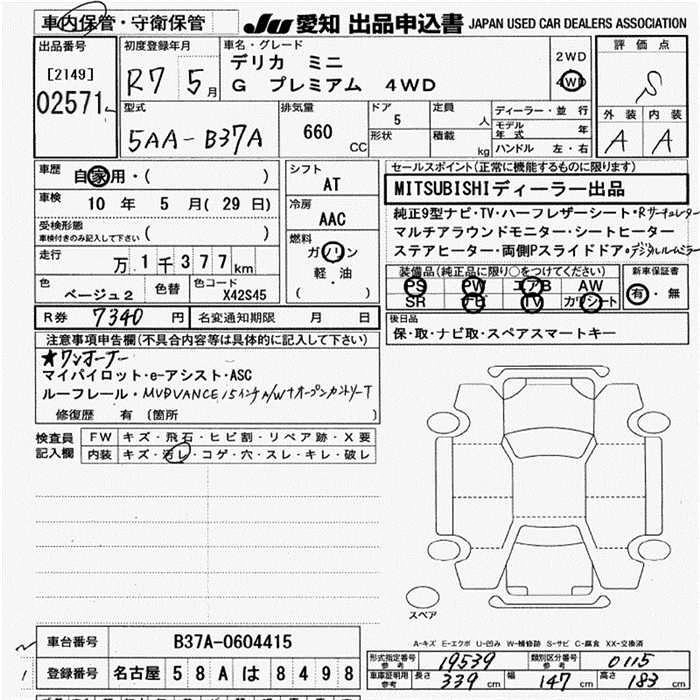 車内保管・守衛保管
JU 愛知 出品申込書 JAPAN USED CAR DEALERS ASSOCIATION
出品番号
[2149]
02571
初度登録年月
R7 5月
車名・グレード
デリカ ミニ
G プレミアム 4WD
2WD
4WD
評価点
S
外装 内装
A A
型式
5AA-B37A
排気量
660 CC
ドア 5
形状
定員 人
積載 kg
ディーラー・並行
モデル年式 年
ハンドル 左・右
車歴 自家用・( )
車検 10年 5月(29日)
受検形態
車検付きのみ記入して下さい ( )
走行 万1千377km
色 ベージュ2
色替
色コード X42S45
シフト
AT
冷房
AAC
燃料
ガソリン
軽・油
( )
R券 7340円
名変通知期限 月 日
セールスポイント(正常に機能するものに限ります)
MITSUBISHIディーラー出品
純正9型ナビ・TV・ハーフレザーシート・Rサーキュレーター
マルチアラウンドモニター・シートヒーター
ステアヒーター・両側Pスライドドア・デジタルルームミラー
装備品(純正品に限り○をつけてください)
PS PW エアB AW
SR ナビ TV カワシート
新車保証書
有・無
後日品
保・取・ナビ取・スペアスマートキー
注意事項申告欄(不具合内容等は具体的に記入して下さい)
★ワンオーナー
マイパイロット・e-アシスト・ASC
ルーフレール・MUDVANCE15インチA/W+オープンカントリーT
修復歴 有 (箇所 )
検査員記入欄
FW キズ・飛石・ヒビ割・リペア跡・X要
内装 キズ・汚レ・コゲ・穴・スレ・キレ・破レ
スペア
A-キズ E-エクボ U-凹み W-補修跡 S-サビ C-腐食 XX-交換済
車台番号 B37A-0604415
登録番号 名古屋 58Aは8498
形式指定番号 参考 19539
類別区分番号 参考 0115
車庫証明用 参考 長さ 339cm 幅 147cm 高さ 183cm